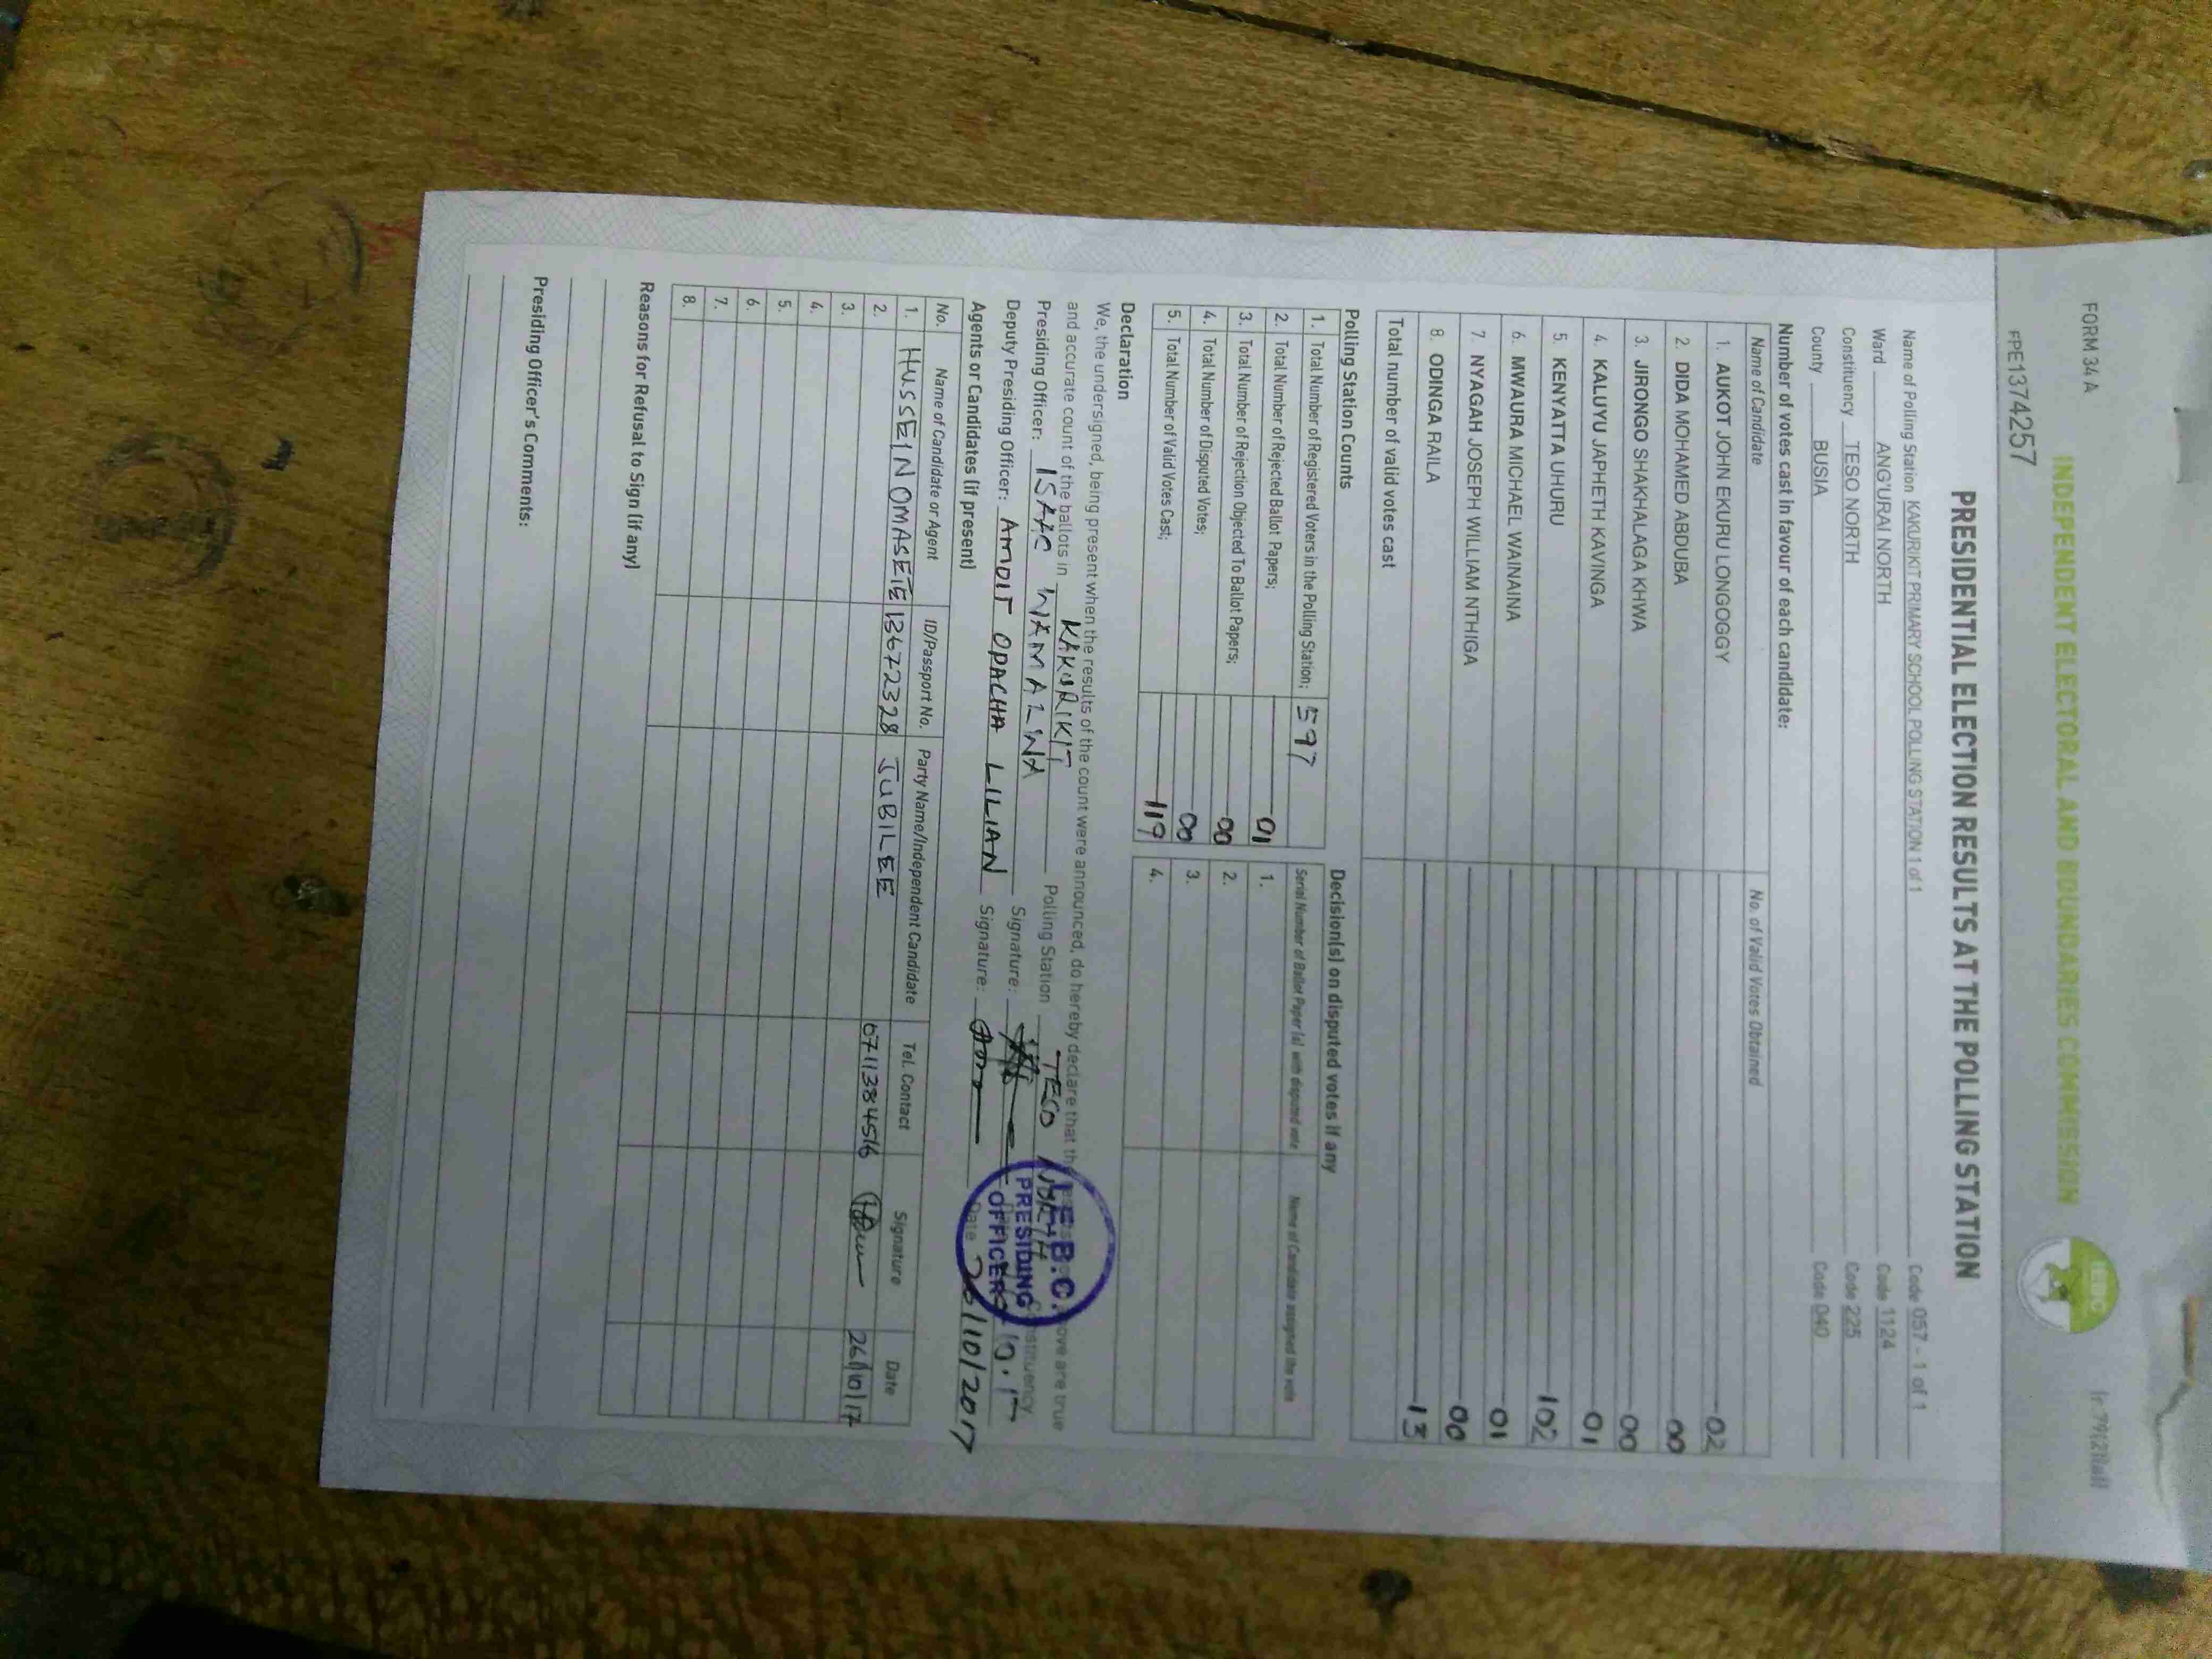 FORM 34 A
INDEPENDENT ELECTORAL AND BOUNDARIES COMMISSION
IEBC
FPE1374257
PRESIDENTIAL ELECTION RESULTS AT THE POLLING STATION
Name of Polling Station KAKURIKIT PRIMARY SCHOOL POLLING STATION 1 of 1 Code 057 - 1 of 1
Ward ANG'URAI NORTH Code 1124
Constituency TESO NORTH Code 225
County BUSIA Code 040
Number of votes cast in favour of each candidate:
Name of Candidate No. of Valid Votes Obtained
1. AUKOT JOHN EKURU LONGOGGY 02
2. DIDA MOHAMED ABDUBA 00
3. JIRONGO SHAKHALAGA KHWA 00
4. KALUYU JAPHETH KAVINGA 01
5. KENYATTA UHURU 102
6. MWAURA MICHAEL WAINAINA 01
7. NYAGAH JOSEPH WILLIAM NTHIGA 00
8. ODINGA RAILA 13
Total number of valid votes cast
Polling Station Counts
1. Total Number of Registered Voters in the Polling Station; 597
2. Total Number of Rejected Ballot Papers; 01
3. Total Number of Rejection Objected To Ballot Papers; 00
4. Total Number of Disputed Votes; 00
5. Total Number of Valid Votes Cast; 119
Decision(s) on disputed votes if any
Serial Number of Ballot Paper (s) with disputed vote Name of Candidate assigned the vote
1.
2.
3.
4.
Declaration
We, the undersigned, being present when the results of the count were announced, do hereby declare that the above are true
and accurate count of the ballots in KAKURIKIT Polling Station TESO NORTH Constituency
Presiding Officer: ISAAC WAMALWA Signature:
Deputy Presiding Officer: AMOIT OPACHA LILIAN Signature: Date 26/10/2017
I.E.B.C.
PRESIDING
OFFICER
Agents or Candidates (if present)
No. Name of Candidate or Agent ID/Passport No. Party Name/Independent Candidate Tel. Contact Signature Date
1. HUSSEIN OMASETE 13672328 JUBILEE 0711384516 26/10/17
2.
3.
4.
5.
6.
7.
8.
Reasons for Refusal to Sign (if any)
Presiding Officer's Comments: